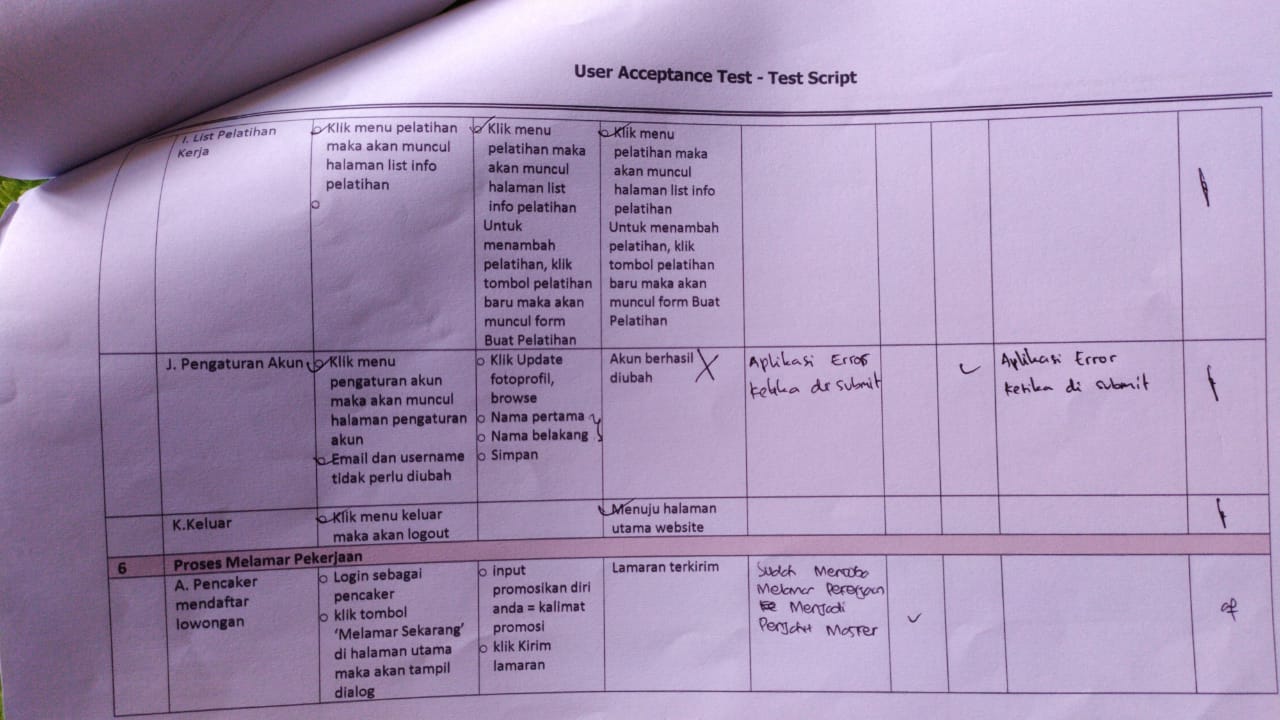 User Acceptance Test - Test Script
I. List Pelatihan
Kerja
Klik menu pelatihan
maka akan muncul
halaman list info
pelatihan
Klik menu
pelatihan maka
akan muncul
halaman list
info pelatihan
Untuk
menambah
pelatihan, klik
tombol pelatihan
baru maka akan
muncul form
Buat Pelatihan
Klik menu
pelatihan maka
akan muncul
halaman list info
pelatihan
Untuk menambah
pelatihan, klik
tombol pelatihan
baru maka akan
muncul form Buat
Pelatihan
J. Pengaturan Akun
Klik menu
pengaturan akun
maka akan muncul
halaman pengaturan
akun
Email dan username
tidak perlu diubah
Klik Update
fotoprofil,
browse
Nama pertama
Nama belakang
Simpan
Akun berhasil
diubah
Aplikasi Error
ketika di submit
Aplikasi Error
ketika di submit
K.Keluar
Klik menu keluar
maka akan logout
Menuju halaman
utama website
6 Proses Melamar Pekerjaan
A. Pencaker
mendaftar
lowongan
Login sebagai
pencaker
klik tombol
'Melamar Sekarang'
di halaman utama
maka akan tampil
dialog
input
promosikan diri
anda = kalimat
promosi
klik Kirim
lamaran
Lamaran terkirim
Sudah Mencoba
Melamar
Menjadi
Master